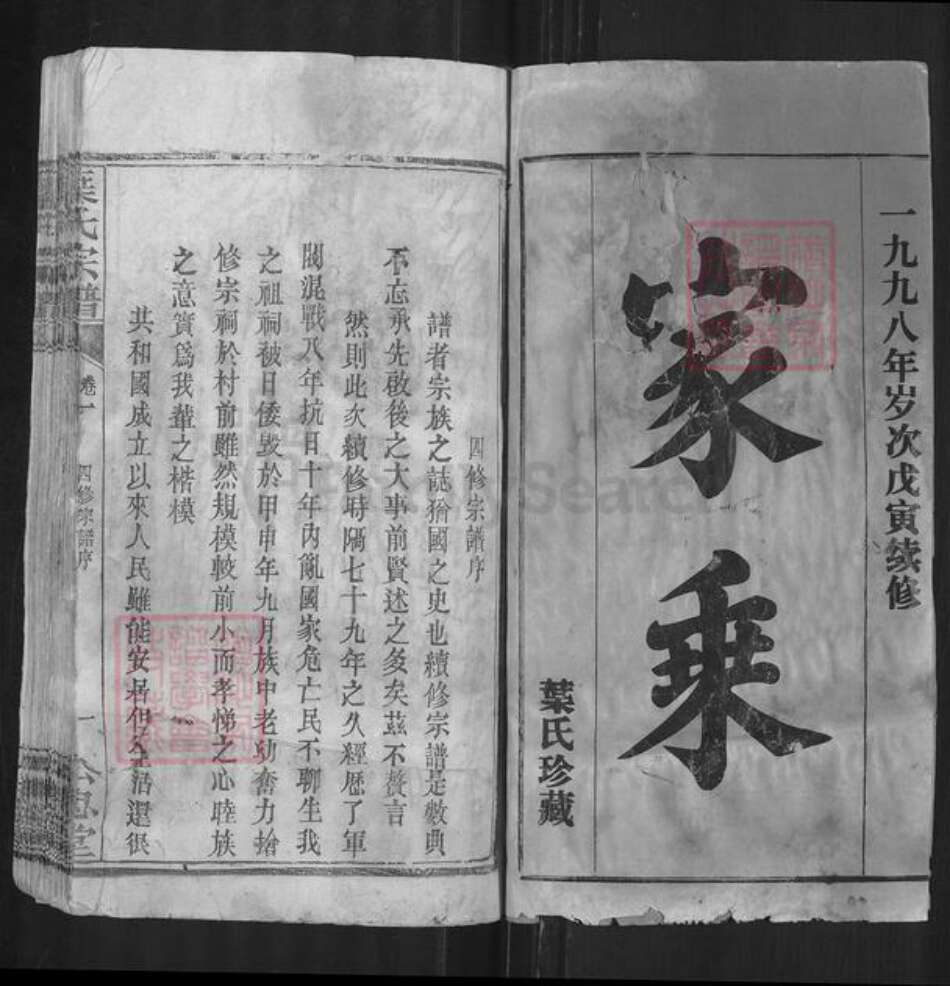 一九九八年岁次戊寅续修
家乘
葉氏珍藏
四修宗譜序
譜者宗族之誌猶國之史也續修宗譜是數典
不忘承先啟後之大事前賢述之多矣茲不贅言
然則此次續修時隔七十九年之久經歷了軍
閥混戰八年抗日十年內亂國家危亡民不聊生我
之祖祠被日倭毀於甲申年九月族中老幼奮力搶
修宗祠於村前雖然規模較前小而孝悌之心睦族
之意實為我輩之楷模
共和國成立以來人民雖能安居但生活還很
葉氏宗譜
卷一
四修宗譜序
一